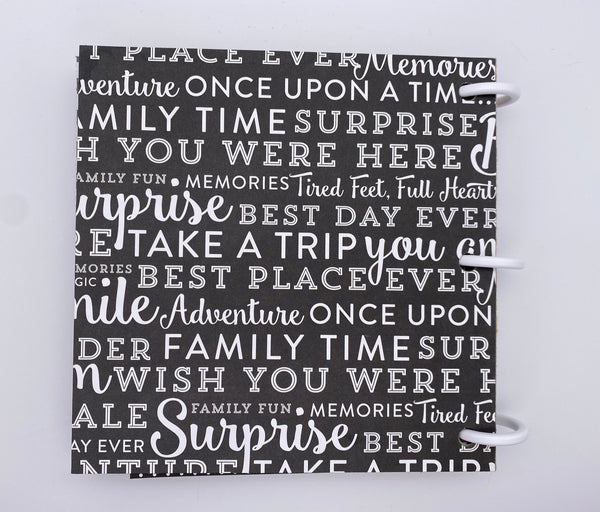 T PLACE EVER Memories
Adventure ONCE UPON A TIME...
FAMILY TIME SURPRISE
H YOU WERE HERE
FAMILY FUN MEMORIES Tired Feet, Full Heart
Surprise BEST DAY EVER
RE TAKE A TRIP you
MEMORIES
GIC BEST PLACE EVER
mile Adventure ONCE UPON
DER FAMILY TIME SUR
WISH YOU WERE H
ALE FAMILY FUN MEMORIES Tired Fe
AY EVER Surprise BEST DA
ENTURE TAKE A TRIP